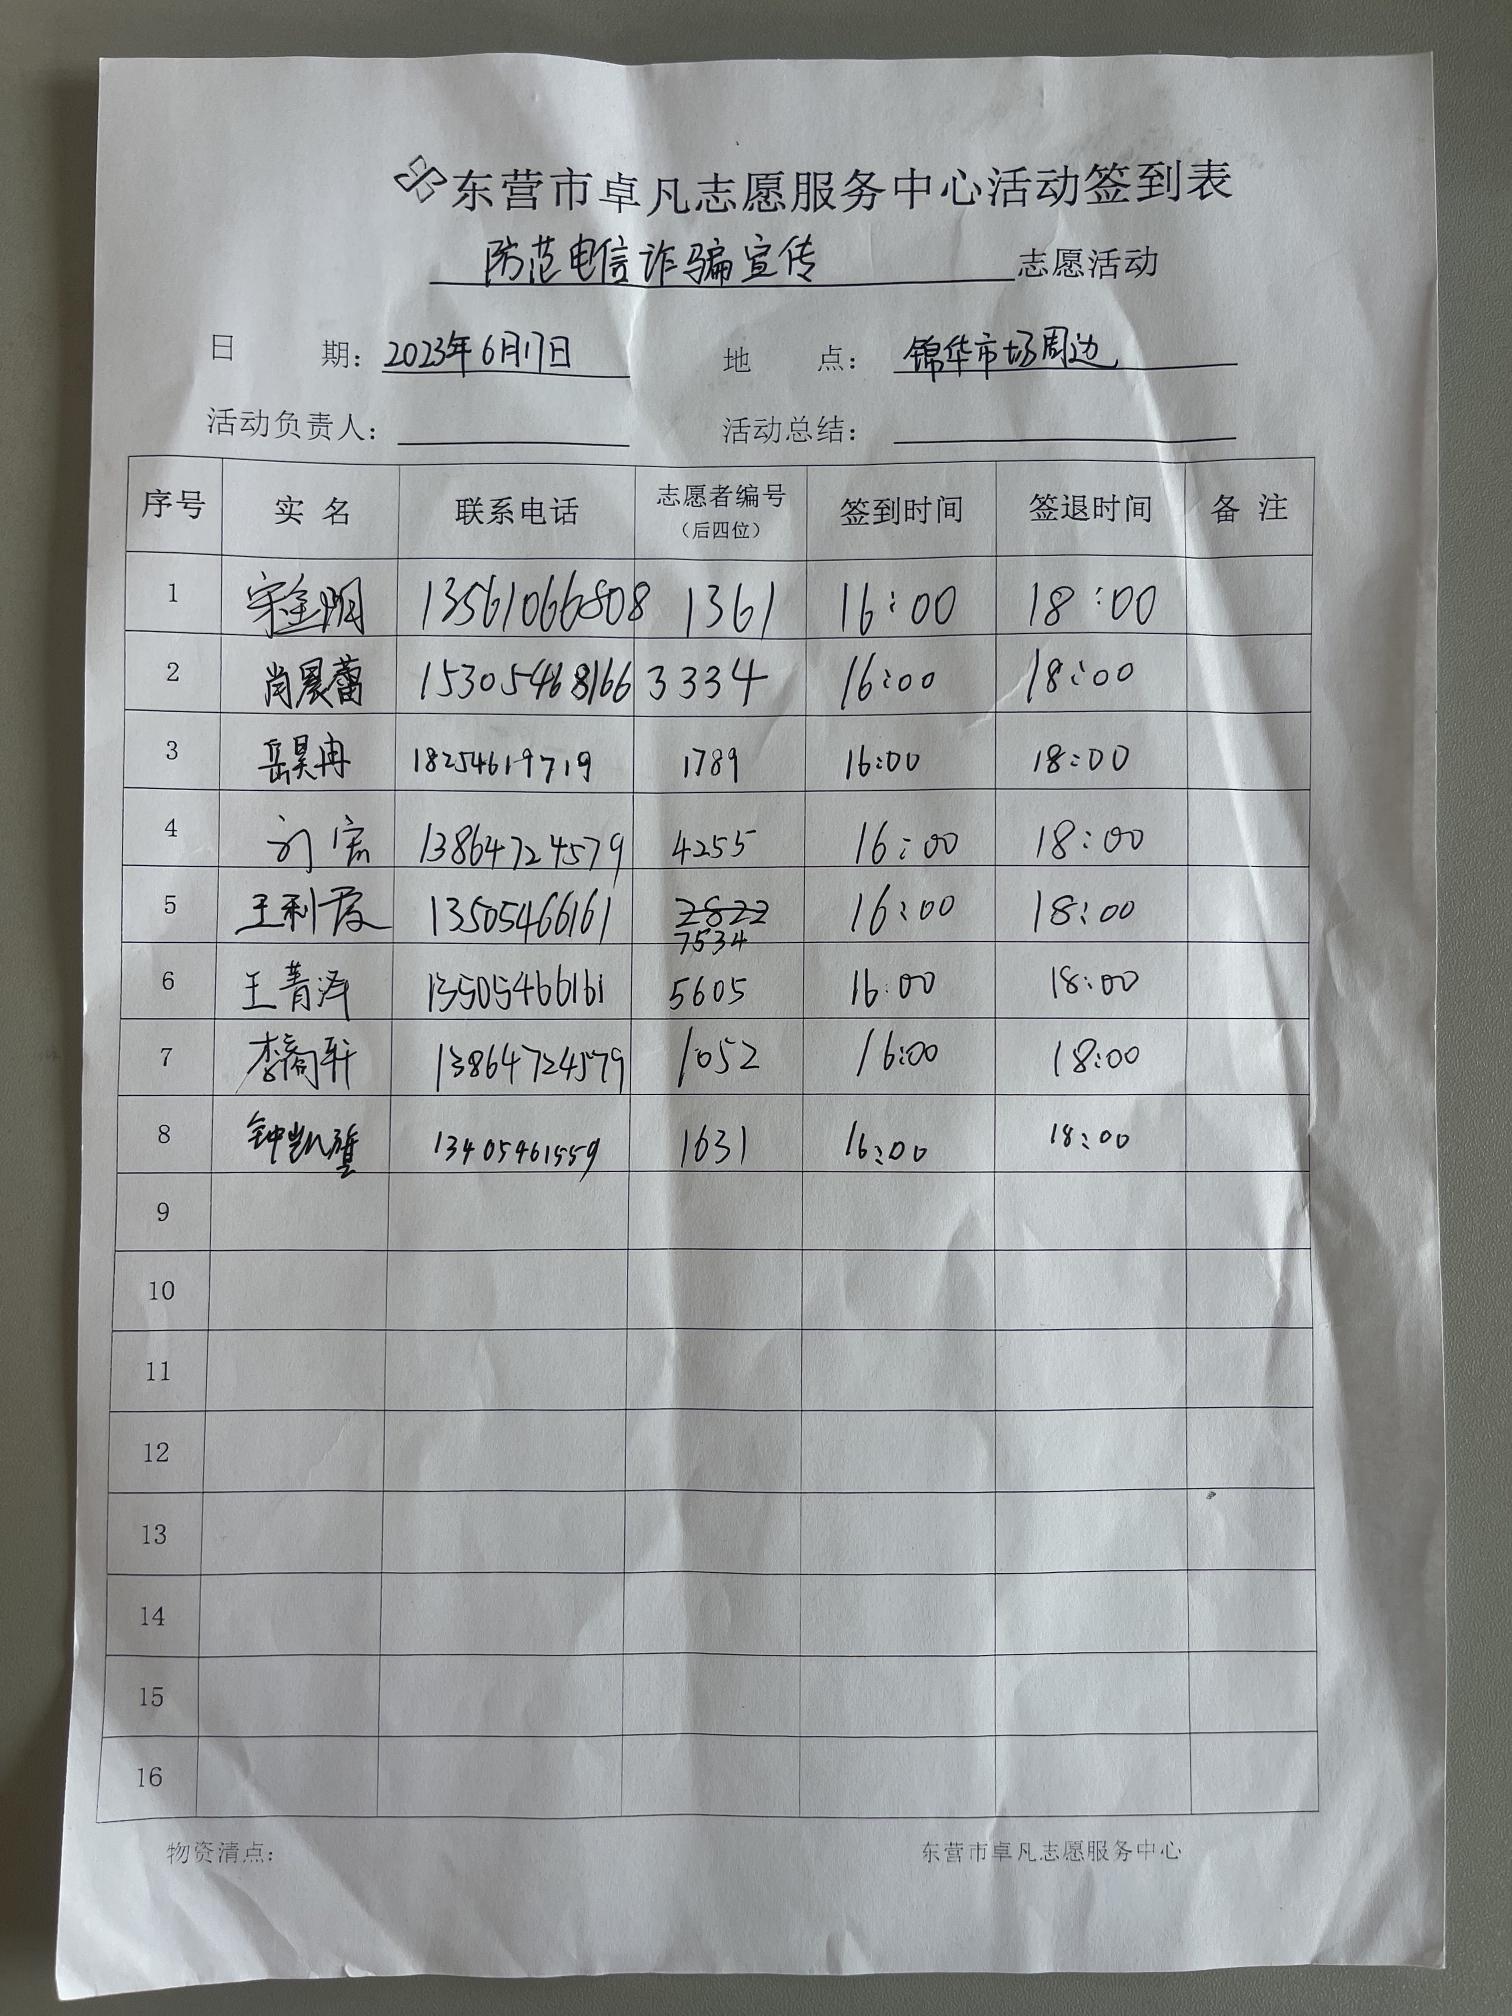 东营市卓凡志愿服务中心活动签到表
防范电信诈骗宣传 志愿活动
日 期：2023年6月17日 地 点：锦华市场周边
活动负责人： 活动总结：
序号 实 名 联系电话 志愿者编号（后四位） 签到时间 签退时间 备 注
1 宋金明 13561066808 1361 16:00 18:00
2 尚晨蕾 15305468166 3334 16:00 18:00
3 岳昊冉 18254619719 1789 16:00 18:00
4 13864724579 4255 16:00 18:00
5 王利霞 13505466161 2822 7534 16:00 18:00
6 王菁泽 13505466161 5605 16:00 18:00
7 李裔轩 13864724579 1052 16:00 18:00
8 钟凯 13405461559 1631 16:00 18:00
9
10
11
12
13
14
15
16
物资清点： 东营市卓凡志愿服务中心